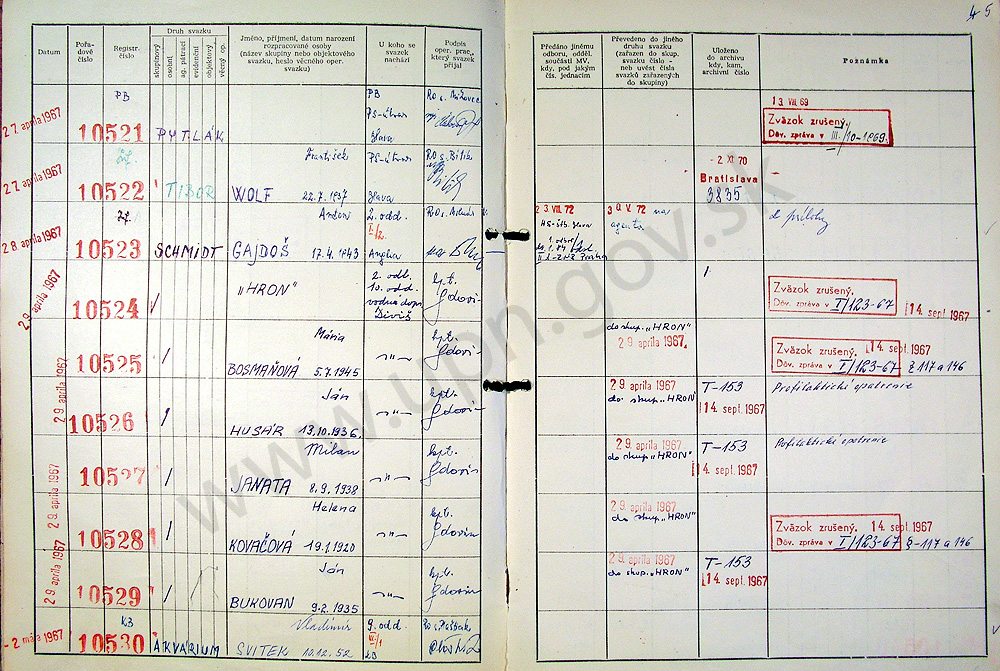 45
Datum
Pořadové číslo
Registr. číslo
Druh svazku
skupinový
osobní
ag. pátrací
evidenční
objektový
věcný op.
Jméno, příjmení, datum narození
rozpracované osoby
(název skupiny nebo objektového
svazku, heslo věcného oper.
svazku)
U koho se
svazek
nachází
Podpis
oper. prac.
který svazek
přijal
Předáno jinému
odboru, odděl.
součásti MV,
kdy, pod jakým
čís. jednacím
Převedeno do jiného
druhu svazku
(zařazen do skup.
svazku číslo -
neb uvést čísla
svazků zařazených
do skupiny)
Uloženo
do archivu
kdy, kam,
archivní číslo
Poznámka
27. apríla 1967
PB
10521
PYTLÁK
PB
Ilava
13. VIII. 69
Zväzok zrušený.
Dôv. zpráva v III/10-1969.
27. apríla 1967
10522
TIBOR
František
WOLF 22.7.1937
Ilava
- 2 XI 70
Bratislava
3835
28. apríla 1967
10523
SCHMIDT
GAJDOŠ 17.4.1943
2. odd.
Anglia
3. VIII. 72
3 0. V. 72 na
agenta
29. apríla 1967
10524
"HRON"
2. odb.
10. odd.
kpt.
Gdovin
Zväzok zrušený.
Dôv. zpráva v I/123-67
14. sept. 1967
29. apríla 1967
10525
Mária
BOSMAŇOVÁ 5.7.1945
-"-
kpt.
Gdovin
do skup. "HRON"
29 apríla 1967
Zväzok zrušený. 14. sept. 1967
Dôv. zpráva v I/123-67 § 117 a 146
10526
Ján
HUSÁR 13.10.1936
-"-
kpt.
Gdovin
29 apríla 1967
do skup. "HRON"
T-153
14. sept. 1967
Profilaktické opatrenie
29. apríla 1967
10527
Milan
JANATA 8.9.1938
-"-
kpt.
Gdovin
29 apríla 1967
do skup. "HRON"
T-153
14. sept. 1967
Profilaktické opatrenie
10528
Helena
KOVAČOVÁ 19.1.1920
-"-
kpt.
Gdovin
29 apríla 1967
do skup. "HRON"
Zväzok zrušený. 14. sept. 1967
Dôv. zpráva v I/123-67 § 117 a 146
29. apríla 1967
10529
Ján
BUKOVAN 9.2.1935
-"-
kpt.
Gdovin
29 apríla 1967
do skup. "HRON"
T-153
14. sept. 1967
- 2. mája 1967
10530
AKVARIUM
Vladimír
SVITEK 10.12.52
9. odd.
www.upn.gov.sk